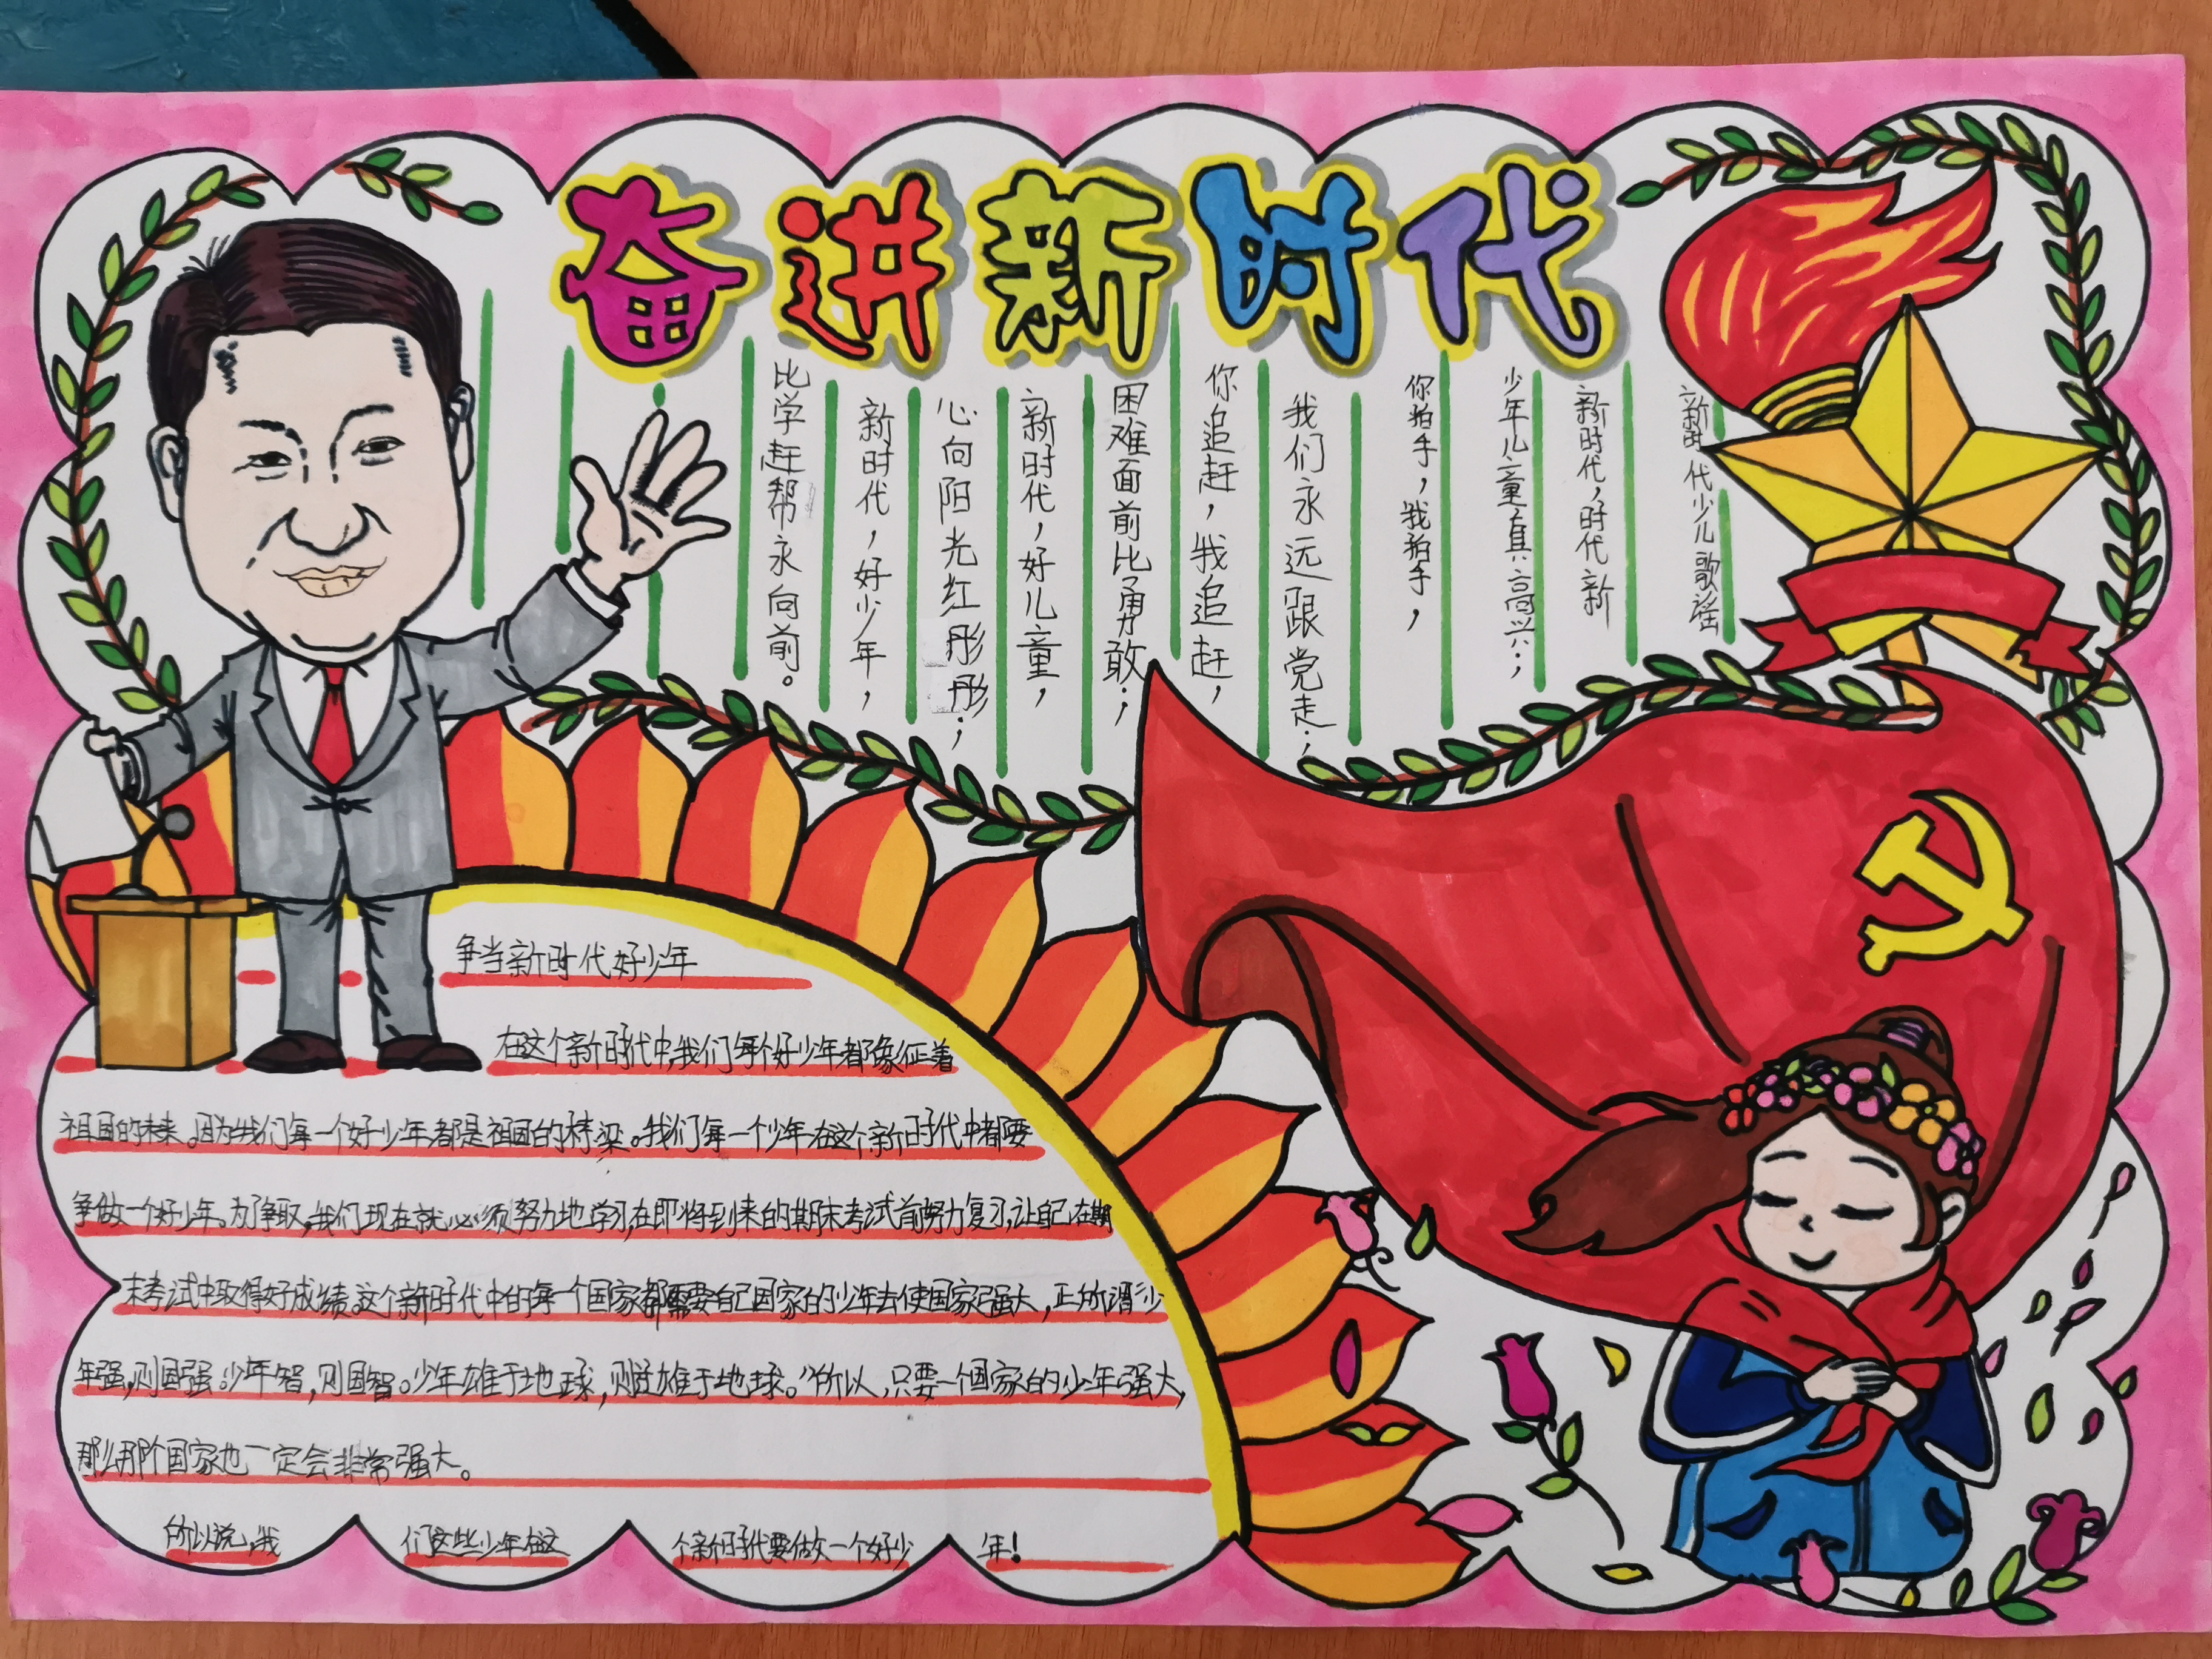 奋进新时代
新时代少儿歌谣
新时代，时代新
少年儿童真高兴；
你拍手，我拍手，
我们永远跟党走；
你追赶，我追赶，
困难面前比勇敢；
新时代，好儿童，
心向阳光红彤彤；
新时代，好少年，
比学赶帮永向前。
争当新时代好少年
在这个新时代中,我们每个好少年都象征着
祖国的未来。因为我们每一个好少年都是祖国的桥梁。我们每一个少年在这个新时代中都要
争做一个好少年。为了争取,我们现在就必须努力地学习,在即将到来的期末考试前努力复习,让自己在期
末考试中取得好成绩.这个新时代中的每一个国家都需要自己国家的少年去使国家强大,正所谓少
年强,则国强。少年智,则国智。少年雄于地球,则国雄于地球。”所以,只要一个国家的少年强大,
那么那个国家也一定会非常强大。
所以说,我们这些少年在这个新时代要做一个好少年!